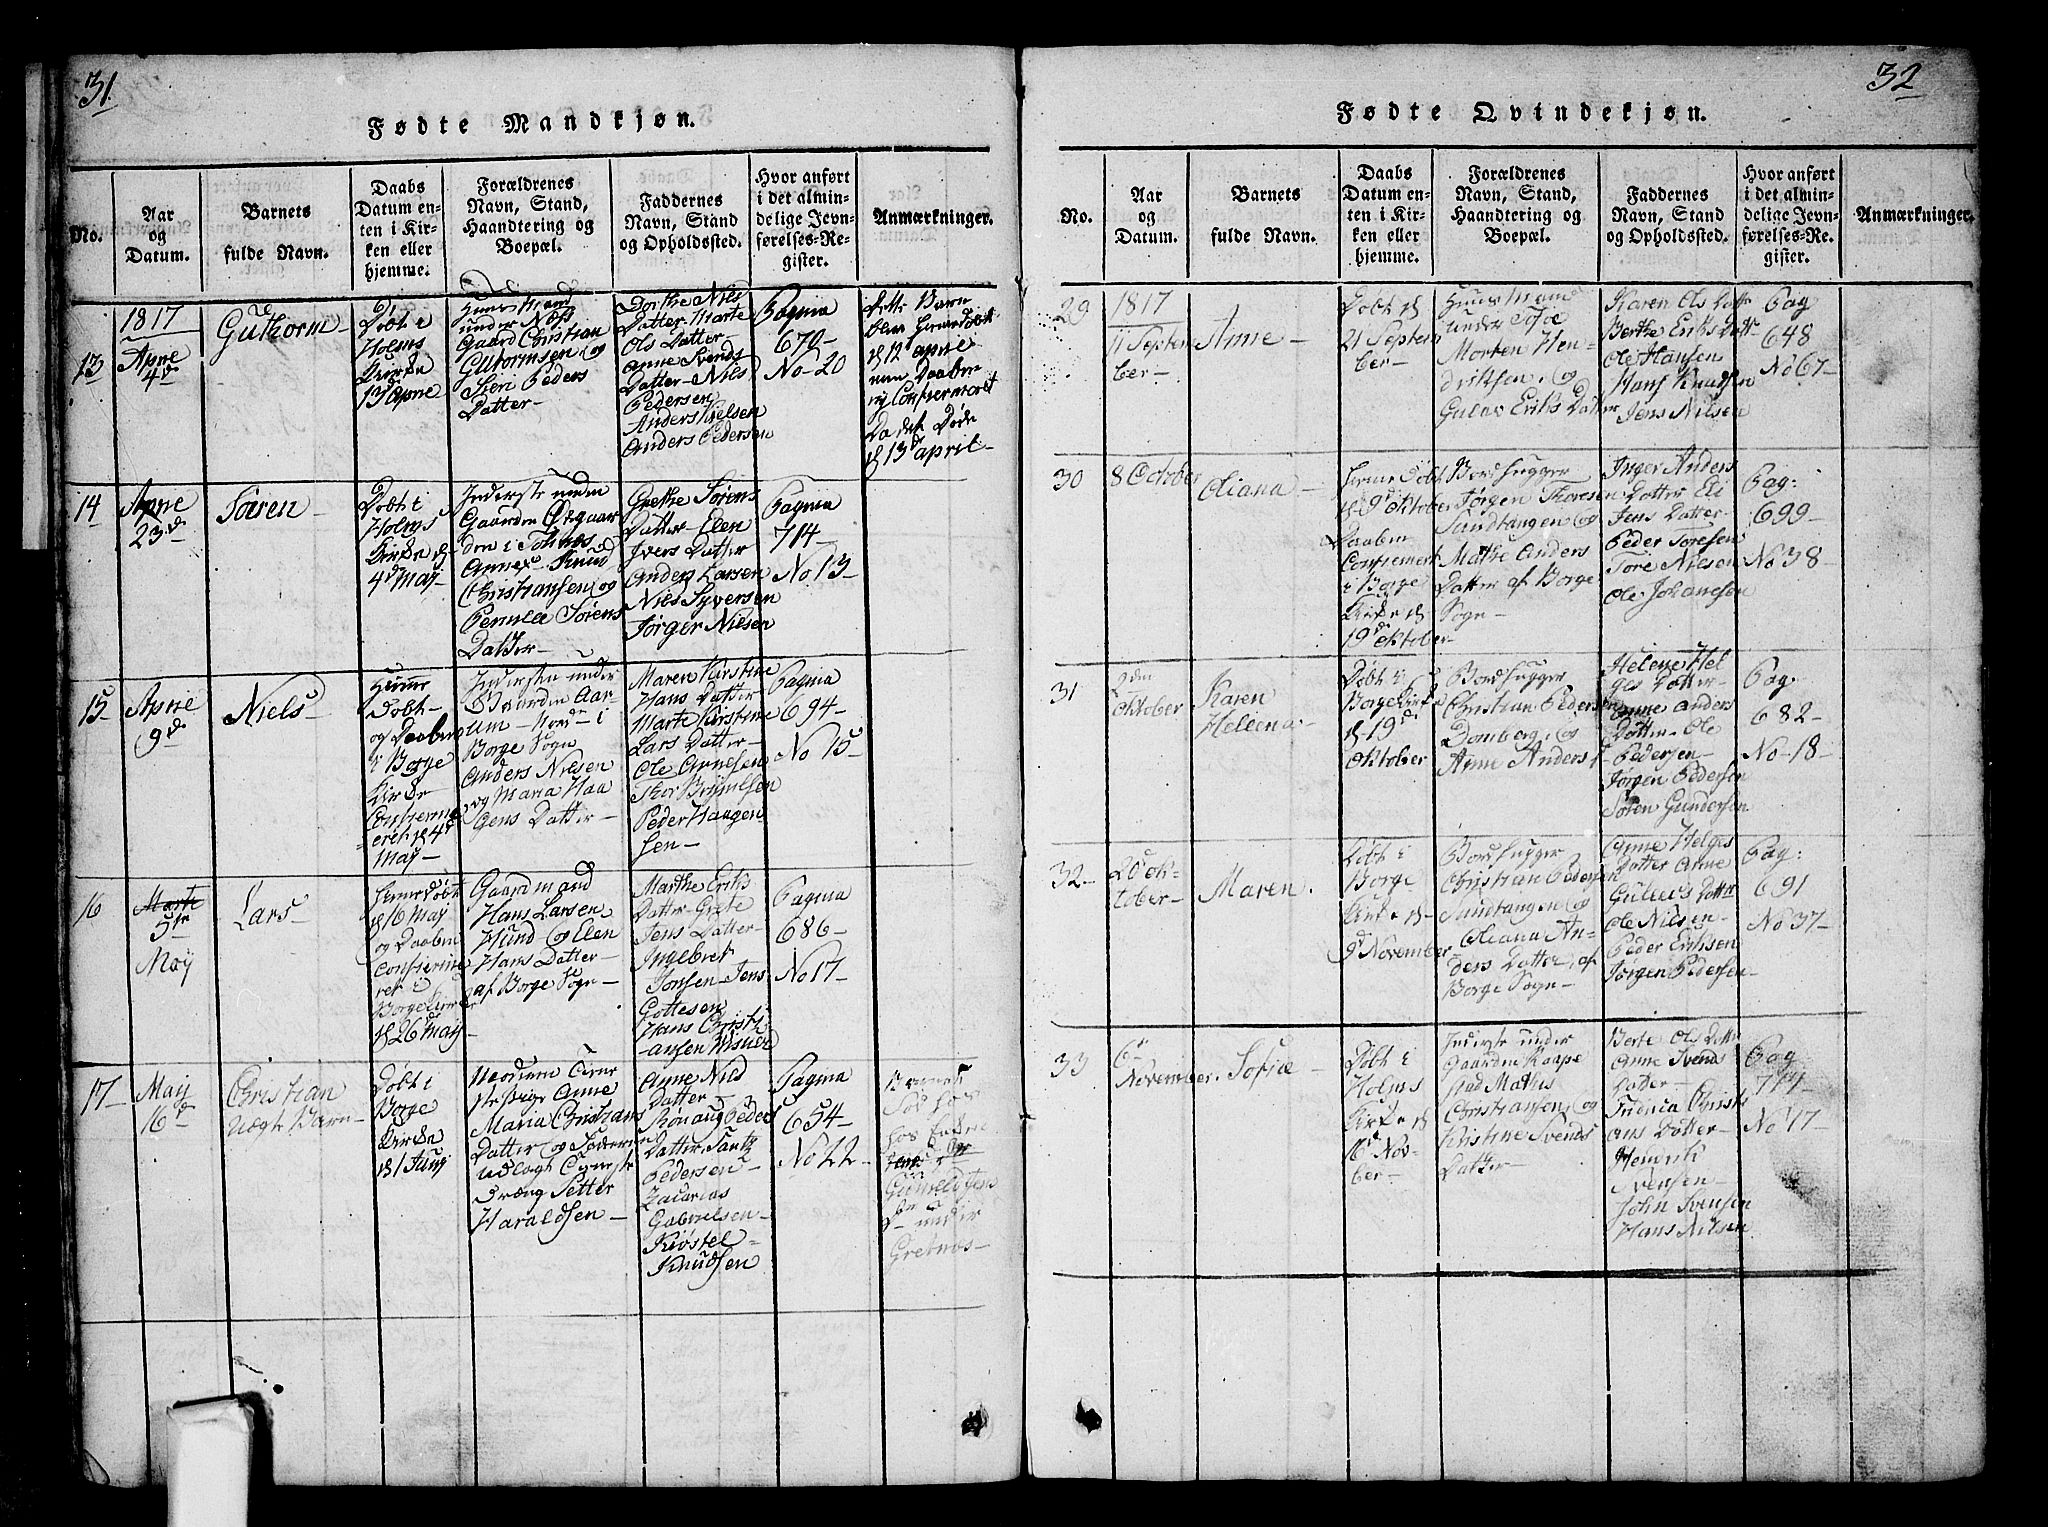 31.
Fødte Mandkjøn.
No.
Aar
og
Datum.
Barnets
fulde Navn.
Daabs
Datum en-
ten i Kir-
ken eller
hjemme.
Forældrenes
Navn, Stand,
Haandtering og
Boepæl.
Faddernes
Navn, Stand
og Opholdssted.
Hvor anført
i det almin-
delige Jevn-
førelses-Re-
gister.
Anmærkninger.
13
1817
Aprie
4d
Guthorm
Dobt i
Holms
Kirke
13 Aprie
Huus Mand
under Næss
Gaard Christian
Gutormsen og
Siri Peders
Datter
Dorthe Niels
Datter Marte
Ols Datter
Anne Svends
Datter Niels
Pedersen
Anders Nielsen
Anders Pedersen
Pagina
670
No 20
Dette Barn
blev hiemedobt
d 12 aprie
men Daaben
ej Confiermeret
Da det Døde
d 13d april
14
Aprie
23d
Sören
Dobt i
Holms
Kirke d
4d Maj
Inderste under
Gaarden Østgaar
den i
Annex Knud
Christiansen og
Pernille Sörens
Datter
Grethe Sörens
Datter Elen
Ivers Datter
Anders Larsen
Niels Syversen
Jørger Nielsen
Pagina
714
No 13
15
Aprie
9d
Niels
Hiemme
Dobt
og Daaben
i Borge
Kirke
Confierme
eret d 4d
May
Inderste under
Gaarden Aar
um Nord i
Borge Sogn
Anders Nilsen
og Maria Haa
gens Datter
Maren Kirstine
Hans Datter
Marte Kirstine
Lars Datter
Ole Arnesen
Thor Brynelsen
Peder Haagen
sen
Pagina
694
No 15
16
5te
May
Lars
hiemedobt
d 6 May
og Daaben
Confierme
ret i
Borge Kirke
d 26 May
Gaardmand
Hans Larsen
Hund og Elen
Hans Datter
af Borge Sogn
Marthe Eriks
Datter Grete
Jens Datter
Ingebret
Jonsen Jens
Gottesen
Hans Christi
ansen
Pagina
686
No 17
17
May
16d
Christian
Uægte Barn
Dobt i
Borge
Kirke
d 1 Junj
Pige Anne
Maria Christians
Datter og
udlagt
Dræng Petter
Haraldsen
Anne Niels
Datter
Rönaug Peders
Datter
Pedersen
Zacarias
Gabrielsen
Kiöstel
Knudsen
Pagina
654
No 22
hos Enken
under
32
Fødte Qvindekjøn.
No.
Aar
og
Datum.
Barnets
fulde Navn.
Daabs
Datum en-
ten i Kir-
ken eller
hjemme.
Forældrenes
Navn, Stand,
Haandtering og
Boepæl.
Faddernes
Navn, Stand
og Opholdssted.
Hvor anført
i det almin-
delige Jevn-
førelses-Re-
gister.
Anmærkninger.
29
1817
11 Septem
ber
Anne
Dobt d
21 Septem
ber
Huus Mand
under
Morten Hen
driksen og
Gulav Eriks Datter
Karen Ols Datter
Berthe Eriks Datt
Ole Hansen
Hans Knudsen
Jens Nilsen
Pag
648
No 67
30
8 October
Oliana
hieme Dobt
d 9d oktober
Daaben
Confiermert
i Borge
Kirke d
19d oktober
Bordhugger
Jørgen Thoresen
Sandtangen og
Mathe Anders
Datter af Borge
Sogn
Inger Anders
Datter Eli
Jens Datter
Peder Toresen
Tore Nielsen
Ole Johanesen
Pag:
699
No 38
31
2den
oktober
Karen
Helena
Döbt i
Borge Kirke
d 19d
Oktober
Bordhugger
Christian Pedersen
Domberg og
Anne Anders d
Helene Hel
ges Datter
Anne Anders
Datter Ole
Pedersen
Jørgen Pedersen
Sören Gundersen
Pag:
682
No 18
32
20 ok-
tober
Maren
Döbt i
Borge
Kirke d
9d November
Bordhugger
Christian Pedersen
Sandtangen og
Oliana An
ders Datter af
Borge Sogn
Anne Helges
Datter Anne
Gulers Datter
Ole Nilsen
Peder Eriksen
Jørgen Pedersen
Pag:
691
No 37
33
6te
November
Sofie
Döbt i
Holms
Kirke d
16d Nov-
ber
Inderste under
Gaarden Kaape
stad Mathis
Christiansen og
Kristine Svends
Datter
Berte Ols Datter
Anne Svends
Datter
Fridrica Christi
ans Datter
Hendrik
Svensen
John Svensen
Hans Nilsen
Pag
714
No 17